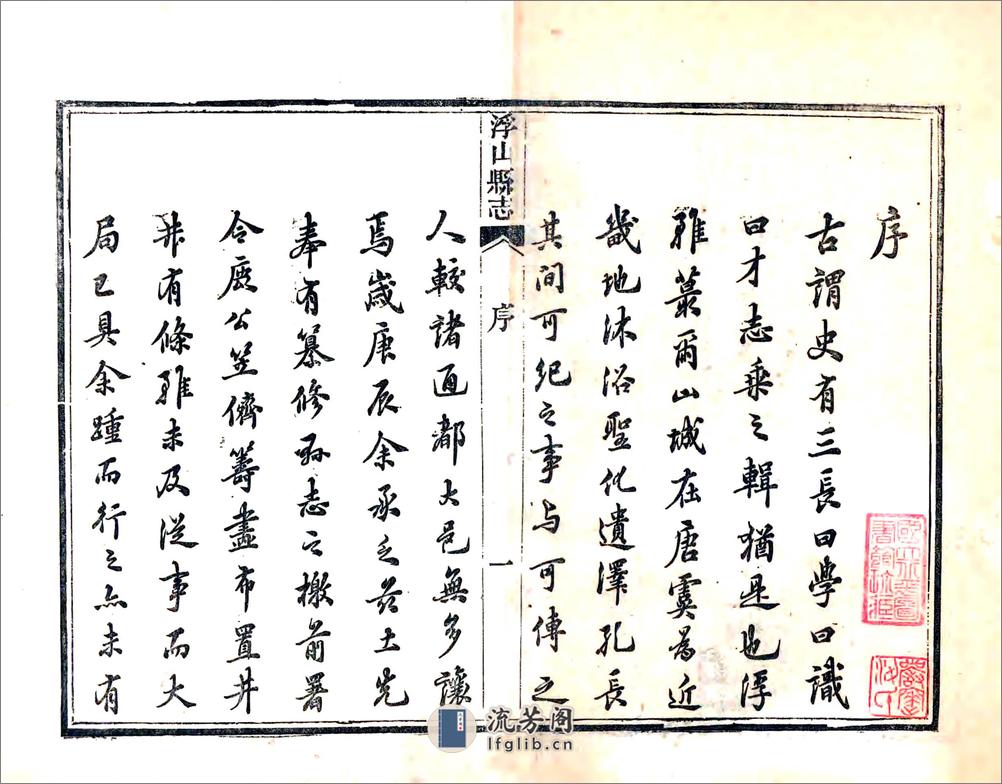 序
古謂史有三長曰學曰識
曰才志乘之輯猶是也浮
雖蕞爾山城在唐虞為近
畿地沐浴聖化遺澤孔長
其間可紀之事与可傳之
浮山縣志
序
一
人較諸通都大邑無多讓
焉歲庚辰余承乏茲土先
奉有纂修縣志之檄前署
令鹿公荃儕籌畫布置井
井有條雖未及從事而大
局已具余踵而行之亦未有
流芳阁
lfglib.cn